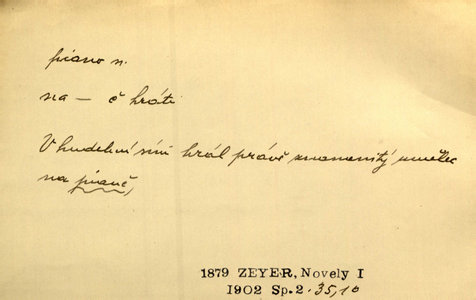 piano n.
na — ě hráti
V hudební síni hrál právě znamenitý umělec
na pianě,
1879 ZEYER, Novely I
1902 Sp.2. 35,10